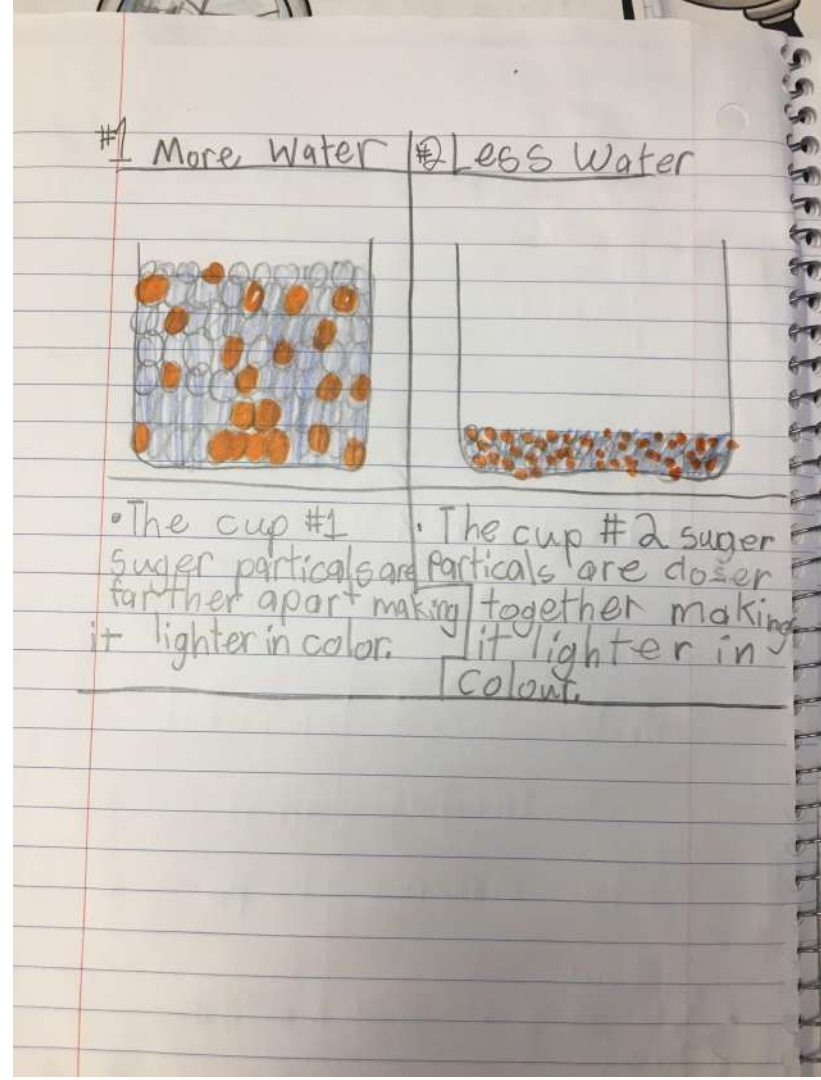 #1 More Water
#2 Less Water
• The cup #1
suger particals are
farther apart making
it lighter in color.
• The cup #2 suger
particals are closer
together making
it lighter in
colour.